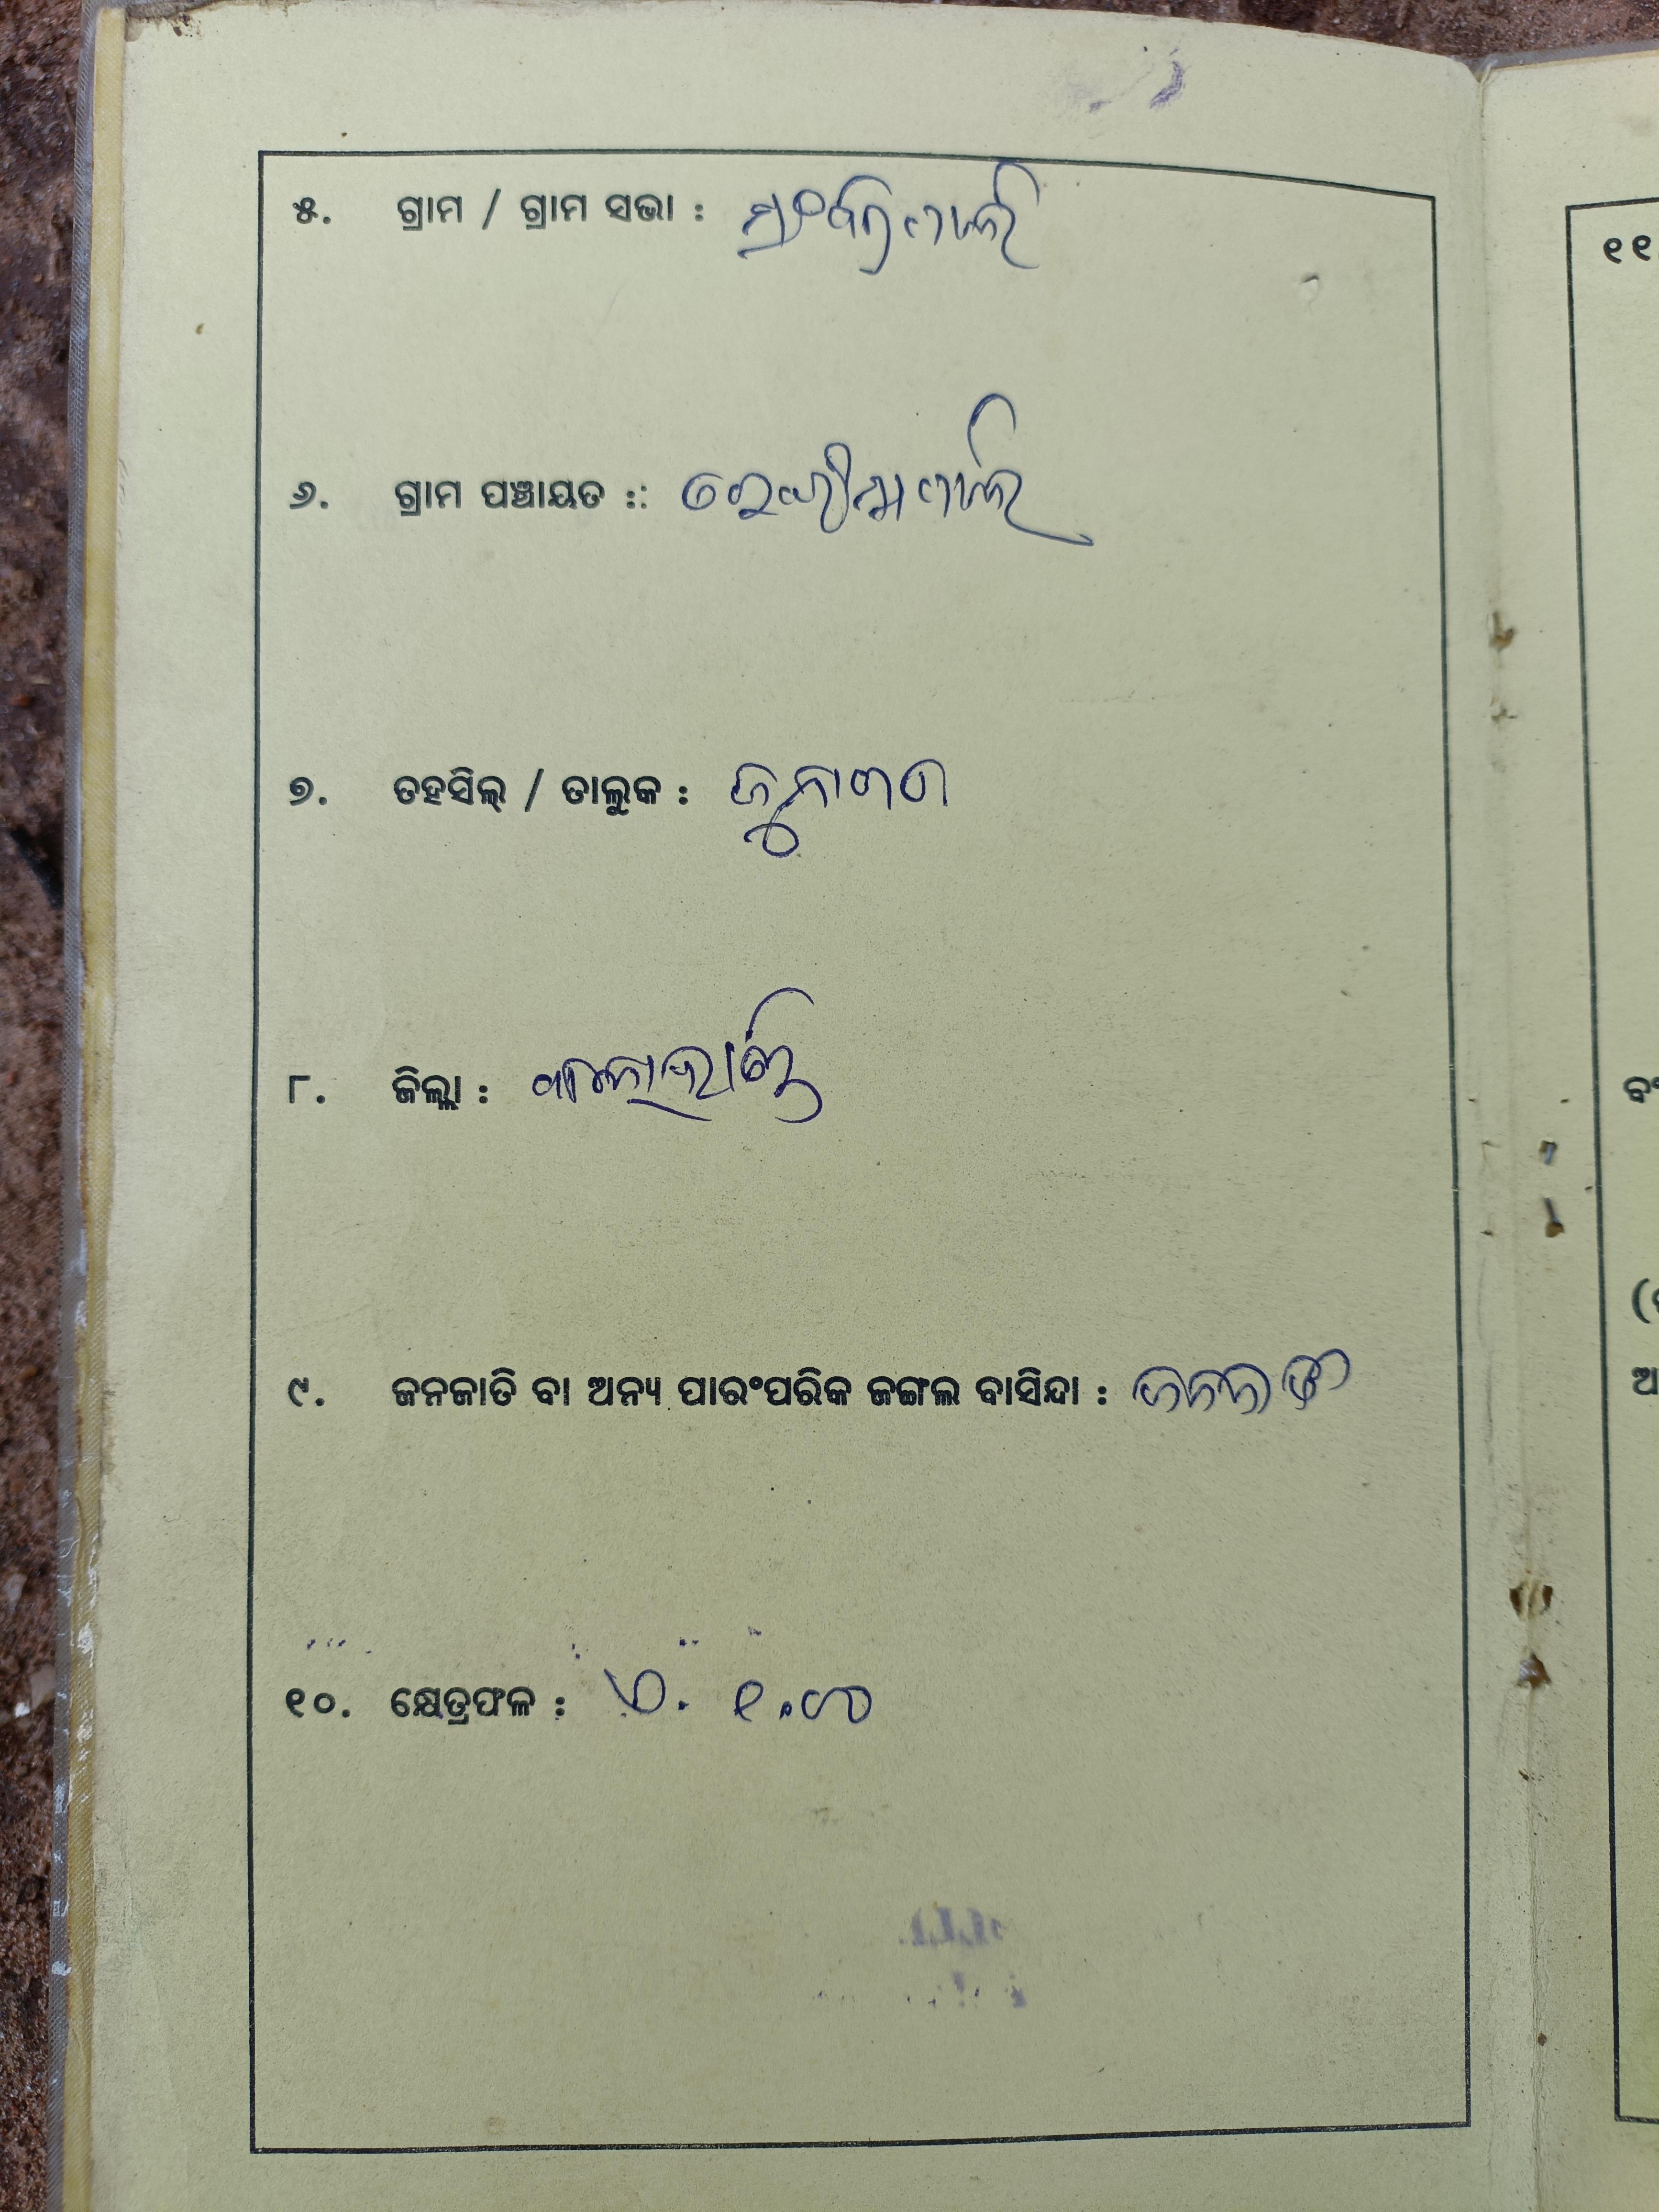 ୫. ଗ୍ରାମ / ଗ୍ରାମ ସଭା :
୬. ଗ୍ରାମ ପଞ୍ଚାୟତ ::
୭. ତହସିଲ୍ / ତାଲୁକ : ଜୁନାଗଡ
୮. ଜିଲ୍ଲା : କଳାହାଣ୍ଡି
୯. ଜନଜାତି ବା ଅନ୍ୟ ପାରଂପରିକ ଜଙ୍ଗଲ ବାସିନ୍ଦା :
୧୦. କ୍ଷେତ୍ରଫଳ : ଏ. ୧.୦୦
୧୧.